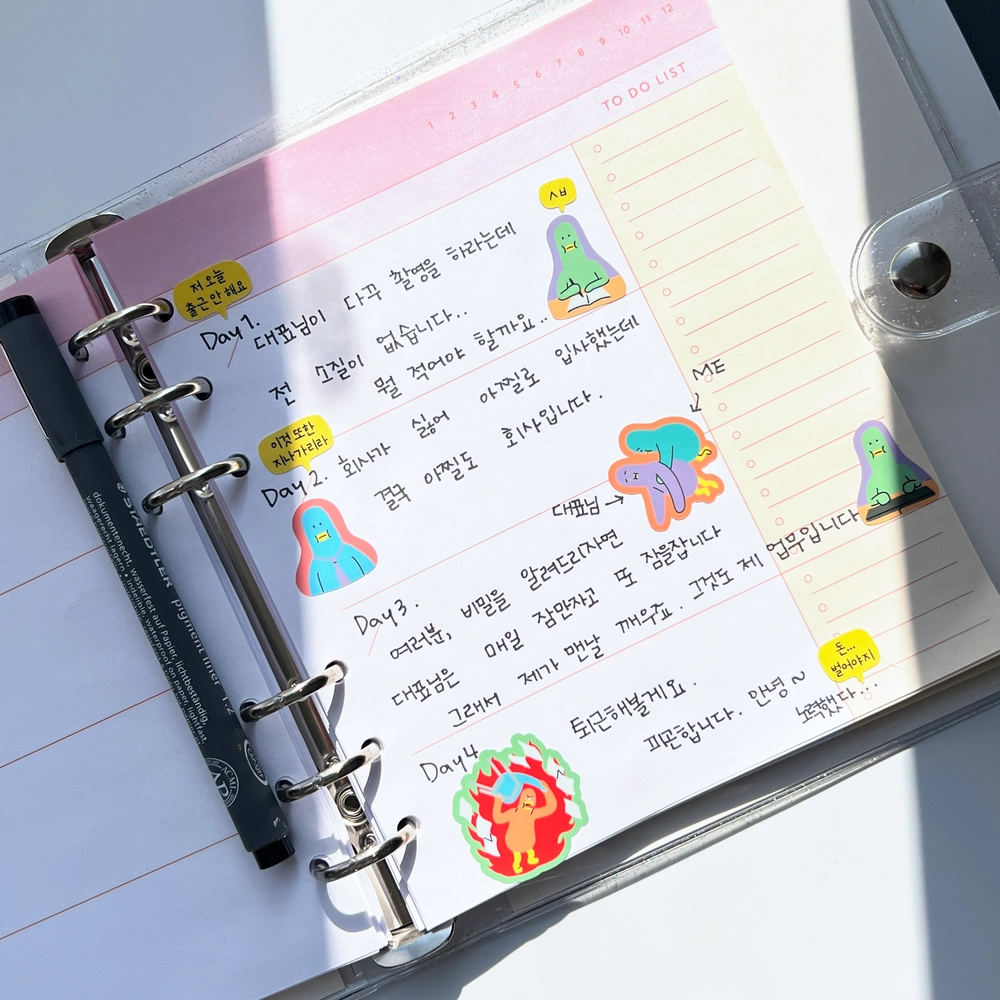 1 2 3 4 5 6 7 8 9 10 11 12
TO DO LIST
ㅅㅂ
저 오늘
출근 안 해요
Day 1.
대표님이 다꾸 촬영을 하라는데
전 소질이 없습니다..
뭘 적어야 할까요..
이것 또한
지나가리라
Day 2. 회사가 싫어 아찔로 입사했는데
결국 아찔도 회사입니다.
ME
대표님 →
Day 3.
여러분, 비밀을 알려드리자면
대표님은 매일 잠만자고 또 잠을잡니다
그래서 제가 맨날 깨우죠. 그것도 제 업무입니다
돈...
벌어야지
Day 4
퇴근해볼게요.
피곤합니다. 안녕~
노력했다..
STAEDTLER pigment liner 1.2
dokumentenecht, wasserfest auf Papier, lichtbeständig,
waagerecht lagern • indelible, waterproof on paper, lightfast,